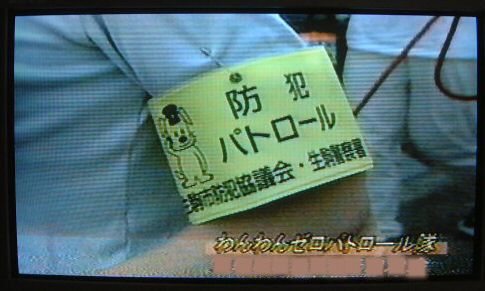 防犯
パトロール
生駒市防犯協議会・生駒警察署
わんわんゼロパトロール隊